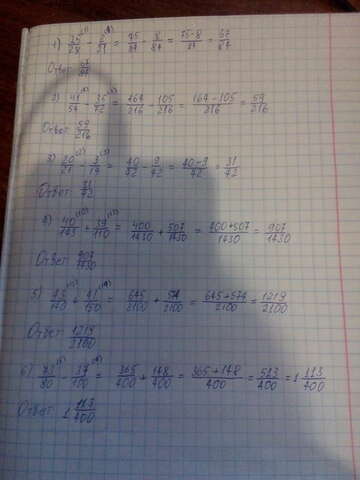 1) 25/28 - 2/21 = 75/84 - 8/84 = 75-8/84 = 67/84
Ответ 67/84
2) 41/54 - 35/72 = 164/216 - 105/216 = 164-105/216 = 59/216
Ответ 59/216
3) 20/21 - 3/14 = 40/42 - 9/42 = 40-9/42 = 31/42
Ответ 31/42
4) 40/143 + 39/110 = 400/1430 + 507/1430 = 400+507/1430 = 907/1430
Ответ 907/1430
5) 43/140 + 41/150 = 645/2100 + 574/2100 = 645+574/2100 = 1219/2100
Ответ 1219/2100
6) 73/80 - 37/100 = 365/400 + 148/400 = 365+148/400 = 513/400 = 1 113/400
Ответ 1 113/400